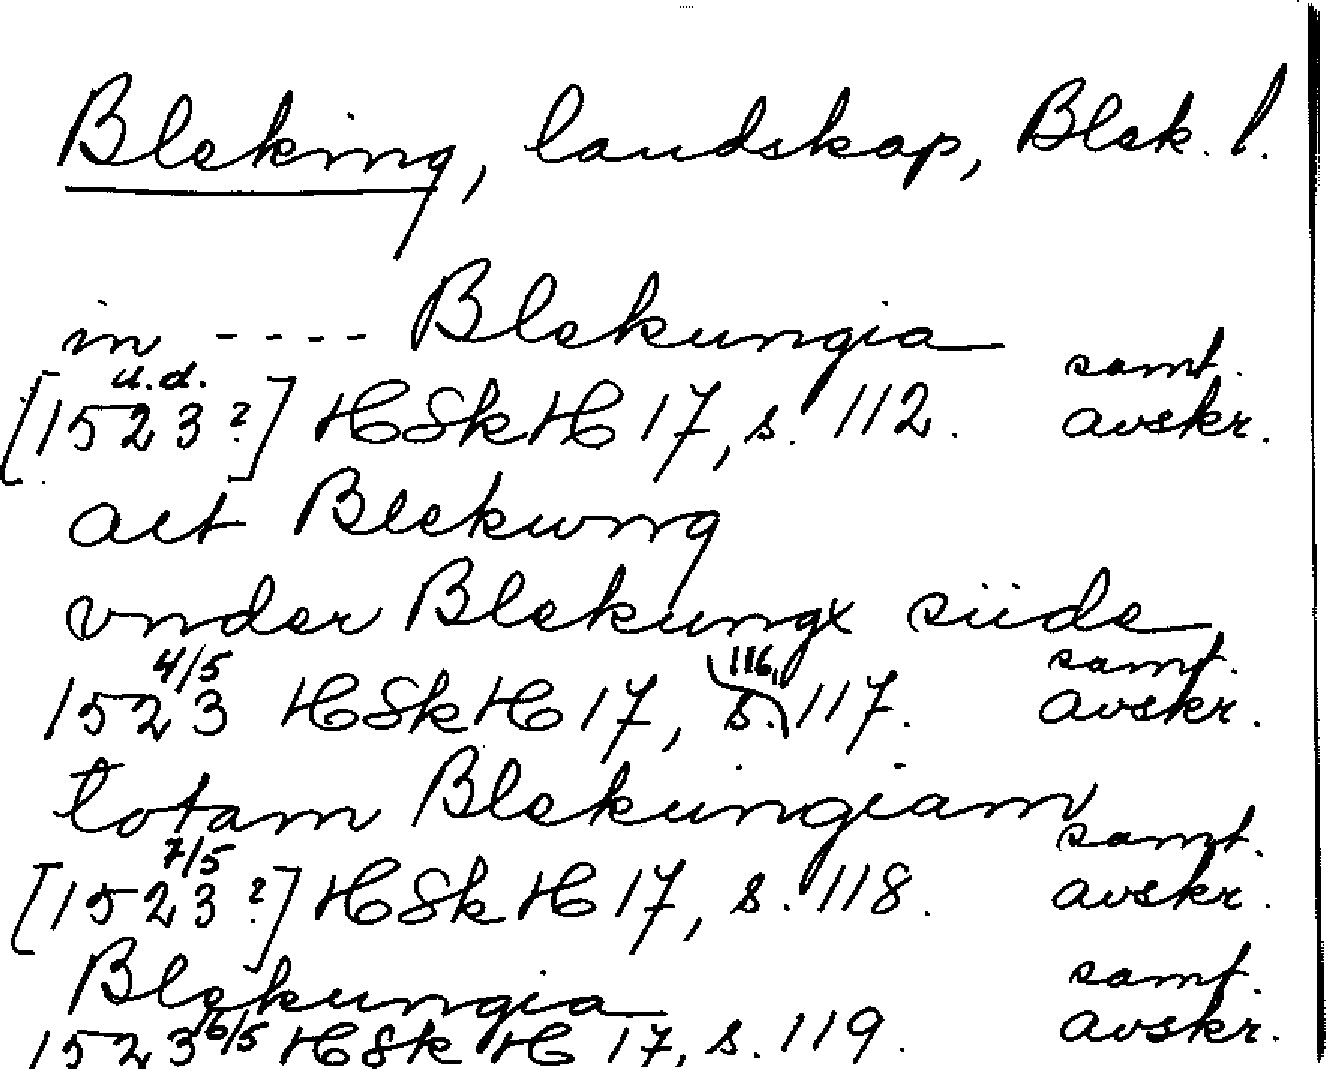 Bleking, landskap, Blek. l.
in ---- Blekungia
[1523 u.d. ?] HSkH 17, s. 112. samt. avskr.
alt Blekwng
vnder Blekungx siide
1523 4/5 HSkH 17, s. 116, 117. samt. avskr.
totam Blekungiam
[1523 7/5 ?] HSkH 17, s. 118. samt. avskr.
Blekungia
1523 6/5 HSkH 17, s. 119. samt. avskr.